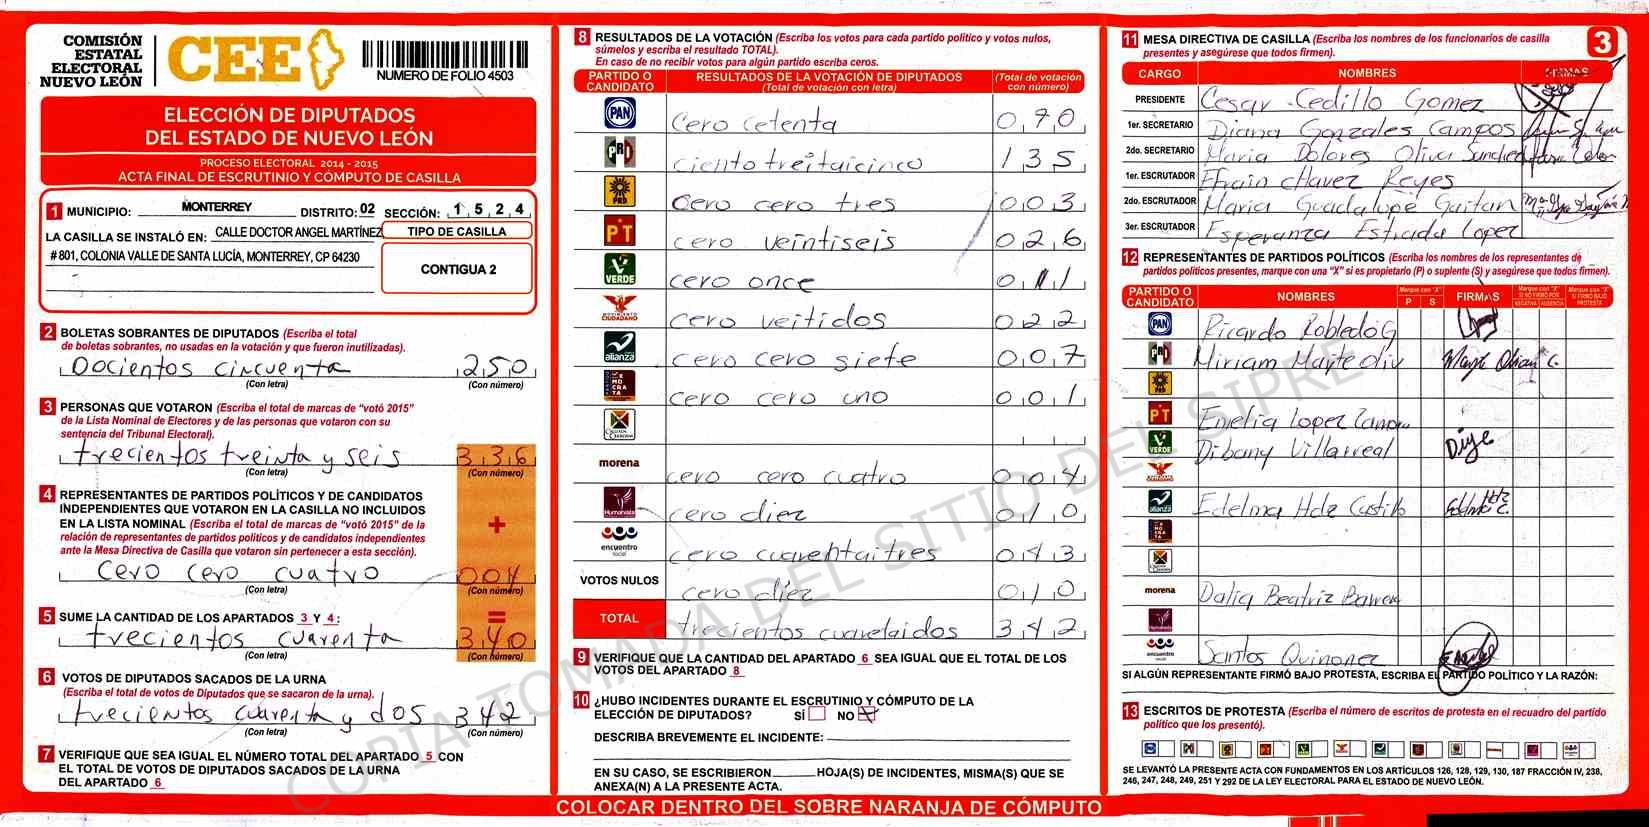 COMISIÓN
ESTATAL
ELECTORAL
NUEVO LEÓN
CEE
NUMERO DE FOLIO 4503
ELECCIÓN DE DIPUTADOS
DEL ESTADO DE NUEVO LEÓN
PROCESO ELECTORAL 2014 - 2015
ACTA FINAL DE ESCRUTINIO Y CÓMPUTO DE CASILLA
1 MUNICIPIO: MONTERREY DISTRITO: 02 SECCIÓN: 1 5 2 4
LA CASILLA SE INSTALÓ EN: CALLE DOCTOR ANGEL MARTÍNEZ TIPO DE CASILLA
# 801, COLONIA VALLE DE SANTA LUCÍA, MONTERREY, CP 64230
CONTIGUA 2
2 BOLETAS SOBRANTES DE DIPUTADOS (Escriba el total
de boletas sobrantes, no usadas en la votación y que fueron inutilizadas).
Docientos cincuenta 250
(Con letra) (Con número)
3 PERSONAS QUE VOTARON (Escriba el total de marcas de “votó 2015”
de la Lista Nominal de Electores y de las personas que votaron con su
sentencia del Tribunal Electoral).
trecientos treinta y seis 336
(Con letra) (Con número)
4 REPRESENTANTES DE PARTIDOS POLÍTICOS Y DE CANDIDATOS
INDEPENDIENTES QUE VOTARON EN LA CASILLA NO INCLUIDOS
EN LA LISTA NOMINAL (Escriba el total de marcas de “votó 2015” de la
relación de representantes de partidos políticos y de candidatos independientes
ante la Mesa Directiva de Casilla que votaron sin pertenecer a esta sección).
+
cero cero cuatro 004
(Con letra) (Con número)
=
5 SUME LA CANTIDAD DE LOS APARTADOS 3 Y 4:
trecientos cuarenta 340
(Con letra) (Con número)
6 VOTOS DE DIPUTADOS SACADOS DE LA URNA
(Escriba el total de votos de Diputados que se sacaron de la urna).
trecientos cuarenta y dos 342
(Con letra) (Con número)
7 VERIFIQUE QUE SEA IGUAL EL NÚMERO TOTAL DEL APARTADO 5 CON
EL TOTAL DE VOTOS DE DIPUTADOS SACADOS DE LA URNA
DEL APARTADO 6
8 RESULTADOS DE LA VOTACIÓN (Escriba los votos para cada partido político y votos nulos,
súmelos y escriba el resultado TOTAL).
En caso de no recibir votos para algún partido escriba ceros.
PARTIDO O CANDIDATO RESULTADOS DE LA VOTACIÓN DE DIPUTADOS (Total de votación con letra) (Total de votación con número)
PAN cero cetenta 070
PRI ciento treitaicinco 135
PRD cero cero tres 003
PT cero veintiseis 026
VERDE cero once 011
MOVIMIENTO CIUDADANO cero veitidos 022
alianza cero cero siete 007
DEMOCRATA cero cero uno 001
CRUZADA CIUDADANA
morena cero cero cuatro 004
Humanista cero diez 010
encuentro social cero cuarentaitres 043
VOTOS NULOS cero diez 010
TOTAL trecientos cuaretaidos 342
9 VERIFIQUE QUE LA CANTIDAD DEL APARTADO 6 SEA IGUAL QUE EL TOTAL DE LOS
VOTOS DEL APARTADO 8
10 ¿HUBO INCIDENTES DURANTE EL ESCRUTINIO Y CÓMPUTO DE LA
ELECCIÓN DE DIPUTADOS? SÍ NO X
DESCRIBA BREVEMENTE EL INCIDENTE:
EN SU CASO, SE ESCRIBIERON HOJA(S) DE INCIDENTES, MISMA(S) QUE SE
ANEXA(N) A LA PRESENTE ACTA.
COLOCAR DENTRO DEL SOBRE NARANJA DE CÓMPUTO
11 MESA DIRECTIVA DE CASILLA (Escriba los nombres de los funcionarios de casilla
presentes y asegúrese que todos firmen).
3
CARGO NOMBRES FIRMAS
PRESIDENTE Cesar Cedillo Gomez
1er. SECRETARIO Diana Gonzales Campos
2do. SECRETARIO Maria Dolores Oliva
1er. ESCRUTADOR Efrain Chavez Reyes
2do. ESCRUTADOR Maria Guadalupe Gaitan
3er. ESCRUTADOR Esperanza Estrada Lopez
12 REPRESENTANTES DE PARTIDOS POLÍTICOS (Escriba los nombres de los representantes de
partidos políticos presentes, marque con una “X” si es propietario (P) o suplente (S) y asegúrese que todos firmen).
PARTIDO O CANDIDATO NOMBRES Marque con "X" P S FIRMAS Marque con "X" SI NO FIRMÓ POR NEGATIVA AUSENCIA Marque con "X" SI FIRMÓ BAJO PROTESTA
PAN Ricardo Robledo G
PRI Miriam Mayte Oliv
PRD
PT Emelia Lopez
VERDE Dibany Villarreal
alianza Edelma Hdz Castillo
morena Dalia Beatriz
encuentro social Santos Quinonez
SI ALGÚN REPRESENTANTE FIRMÓ BAJO PROTESTA, ESCRIBA EL PARTIDO POLÍTICO Y LA RAZÓN:
13 ESCRITOS DE PROTESTA (Escriba el número de escritos de protesta en el recuadro del partido
político que los presentó).
SE LEVANTÓ LA PRESENTE ACTA CON FUNDAMENTOS EN LOS ARTÍCULOS 126, 128, 129, 130, 187 FRACCIÓN IV, 238,
246, 247, 248, 249, 251 Y 292 DE LA LEY ELECTORAL PARA EL ESTADO DE NUEVO LEÓN.
COPIA TOMADA DEL SITIO DEL SIPRE